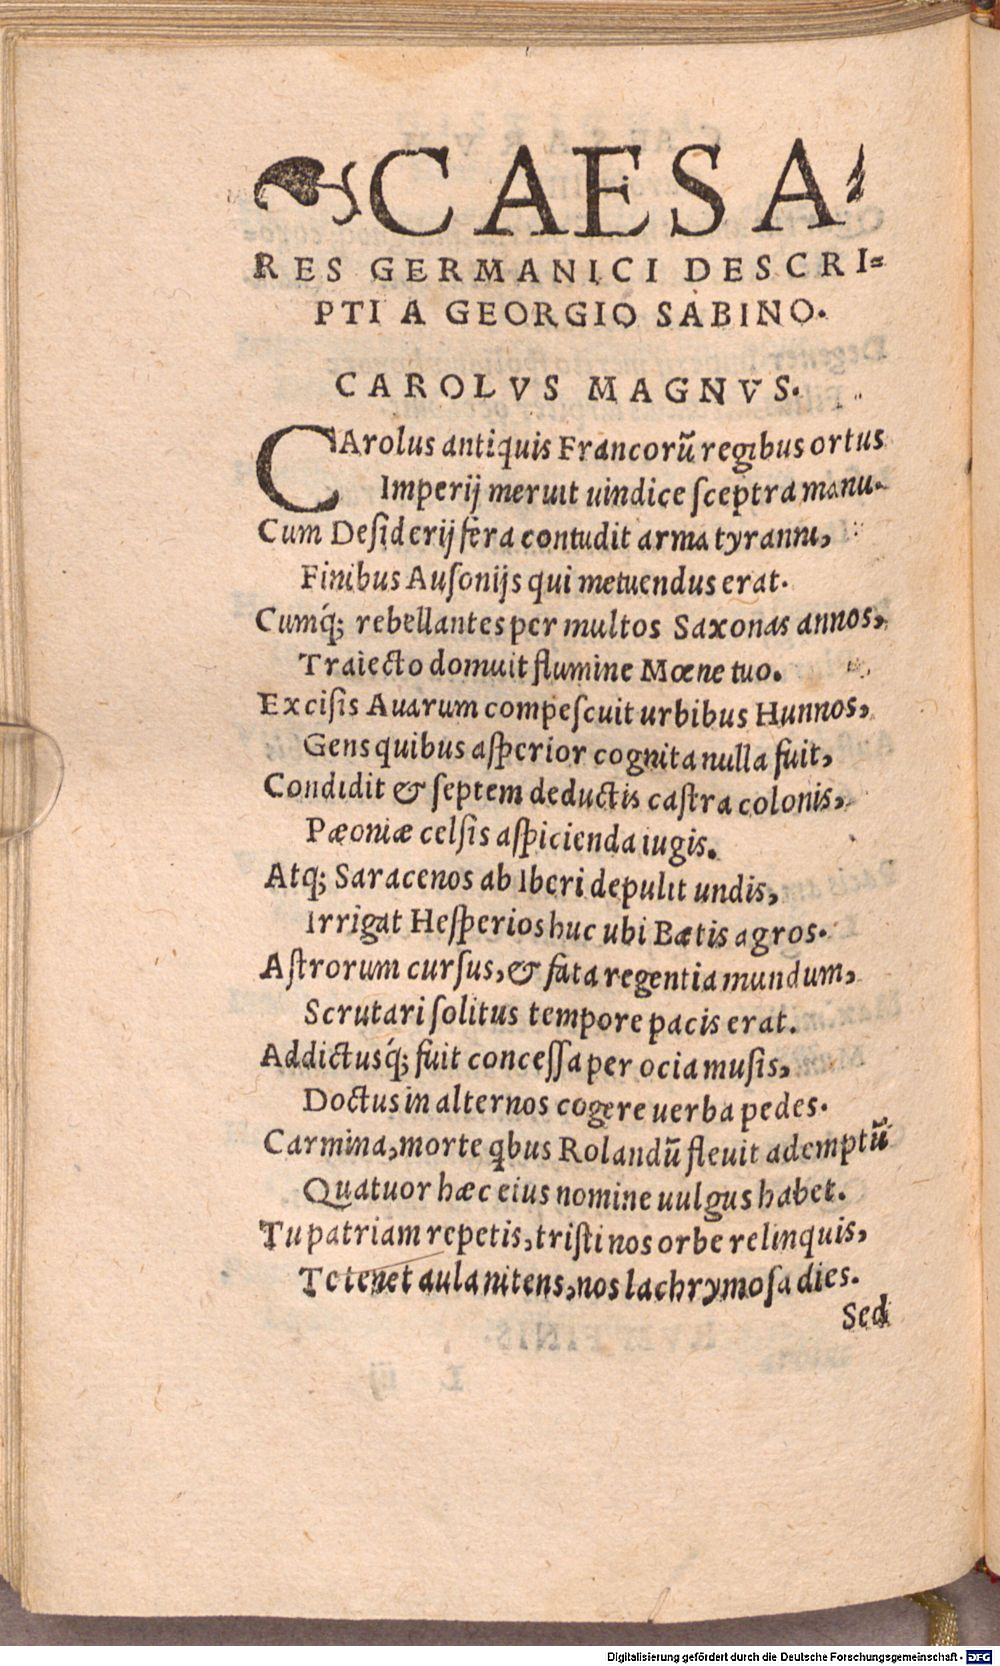 ❧ CAESA⸗
RES GERMANICI DESCRI⸗
PTI A GEORGIO SABINO.
CAROLVS MAGNVS.
CArolus antiquis Francorũ regibus ortus
Imperij meruit uindice ſceptra manu.
Cum Deſiderij fera contudit arma tyranni,
Finibus Auſonijs qui metuendus erat.
Cumq́; rebellantes per multos Saxonas annos,
Traiecto domuit flumine Mœne tuo.
Exciſis Auarum compeſcuit urbibus Hunnos,
Gens quibus aſperior cognita nulla fuit,
Condidit & ſeptem deductis caſtra colonis,
Pæoniæ celſis aſpicienda iugis.
Atq; Saracenos ab Iberi depulit undis,
Irrigat Heſperios huc ubi Bætis agros.
Aſtrorum curſus, & fata regentia mundum,
Scrutari ſolitus tempore pacis erat.
Addictusq́; fuit conceſſa per ocia muſis,
Doctus in alternos cogere uerba pedes.
Carmina, morte ꝗbus Rolandũ fleuit ademptũ
Quatuor hæc eius nomine uulgus habet.
Tu patriam repetis, triſti nos orbe relinquis,
Te tenet aula nitens, nos lachrymoſa dies.
Sed
Digitalisierung gefördert durch die Deutsche Forschungsgemeinschaft - DFG